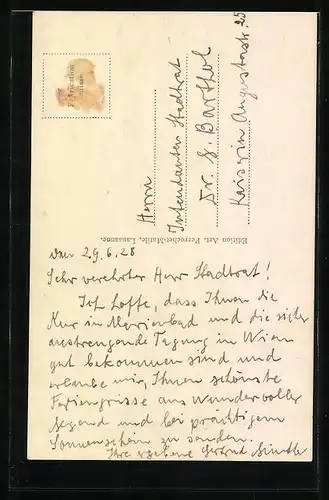 Fabrication
Suisse
Herrn
Intendanten Stadtrat
Dr. G. Barthol
Kaiserin Augustastr. 25
Edition Art. Perrochet-Matile, Lausanne.
den 29.6.28
Sehr verehrter Herr Stadtrat!
Ich hoffe, dass Ihnen die
Kur in Marienbad und die sicher
anstrengende Tagung in Wien
gut bekommen sind und
erlaube mir, Ihnen schönste
Feriengrüsse aus wundervoller
Gegend und bei prächtigem
Sonnenschein zu senden.
Ihre ergebene Gertrud